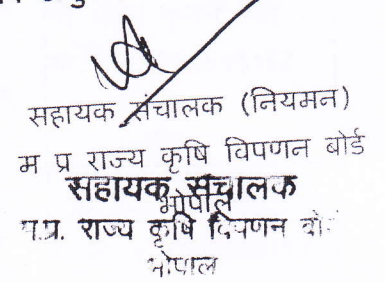 सहायक संचालक (नियमन)
म प्र राज्य कृषि विपणन बोर्ड
भोपाल
सहायक संचालक
म.प्र. राज्य कृषि विपणन बोर्ड
भोपाल